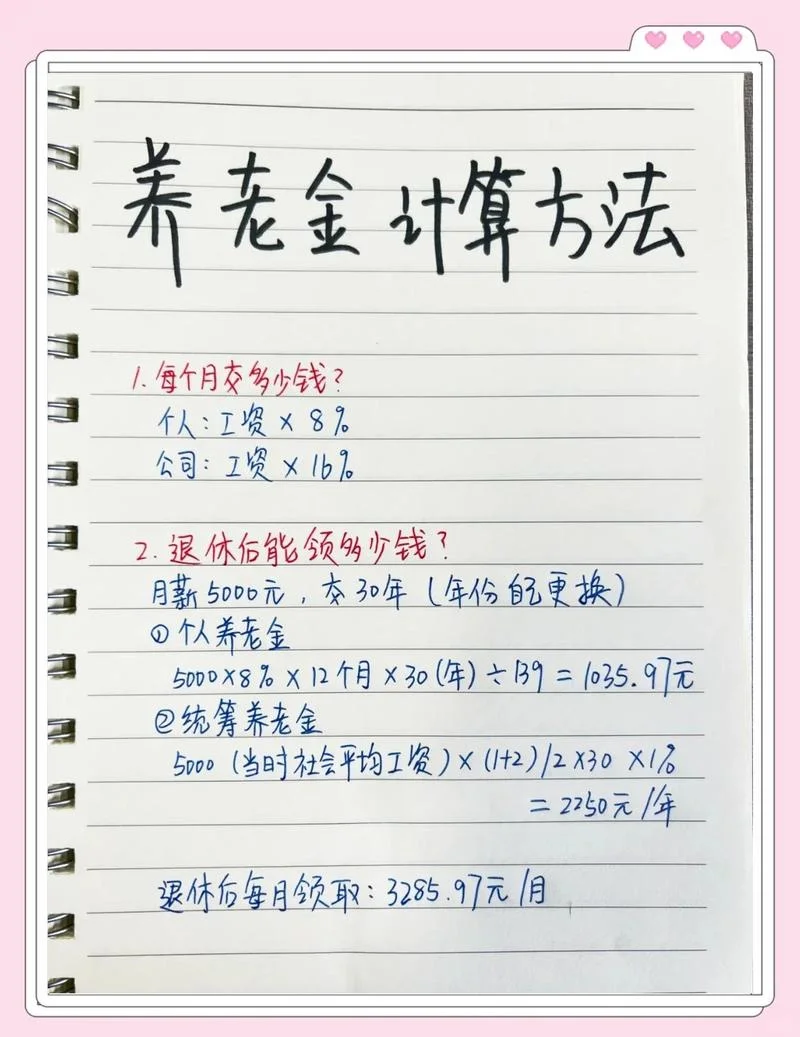 养老金计算方法
1. 每个月交多少钱？
个人：工资×8%
公司：工资×16%
2. 退休后能领多少钱？
月薪5000元，交30年（年份自己更换）
①个人养老金
5000×8%×12个月×30(年)÷139=1035.97元
②统筹养老金
5000（当时社会平均工资）×(1+2)/2×30×1%
=2250元/年
退休后每月领取：3285.97元/月